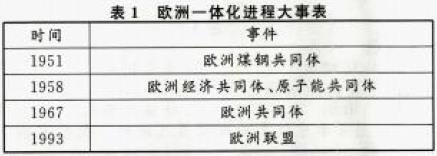 表1 欧洲一体化进程大事表
时间 事件
1951 欧洲煤钢共同体
1958 欧洲经济共同体、原子能共同体
1967 欧洲共同体
1993 欧洲联盟